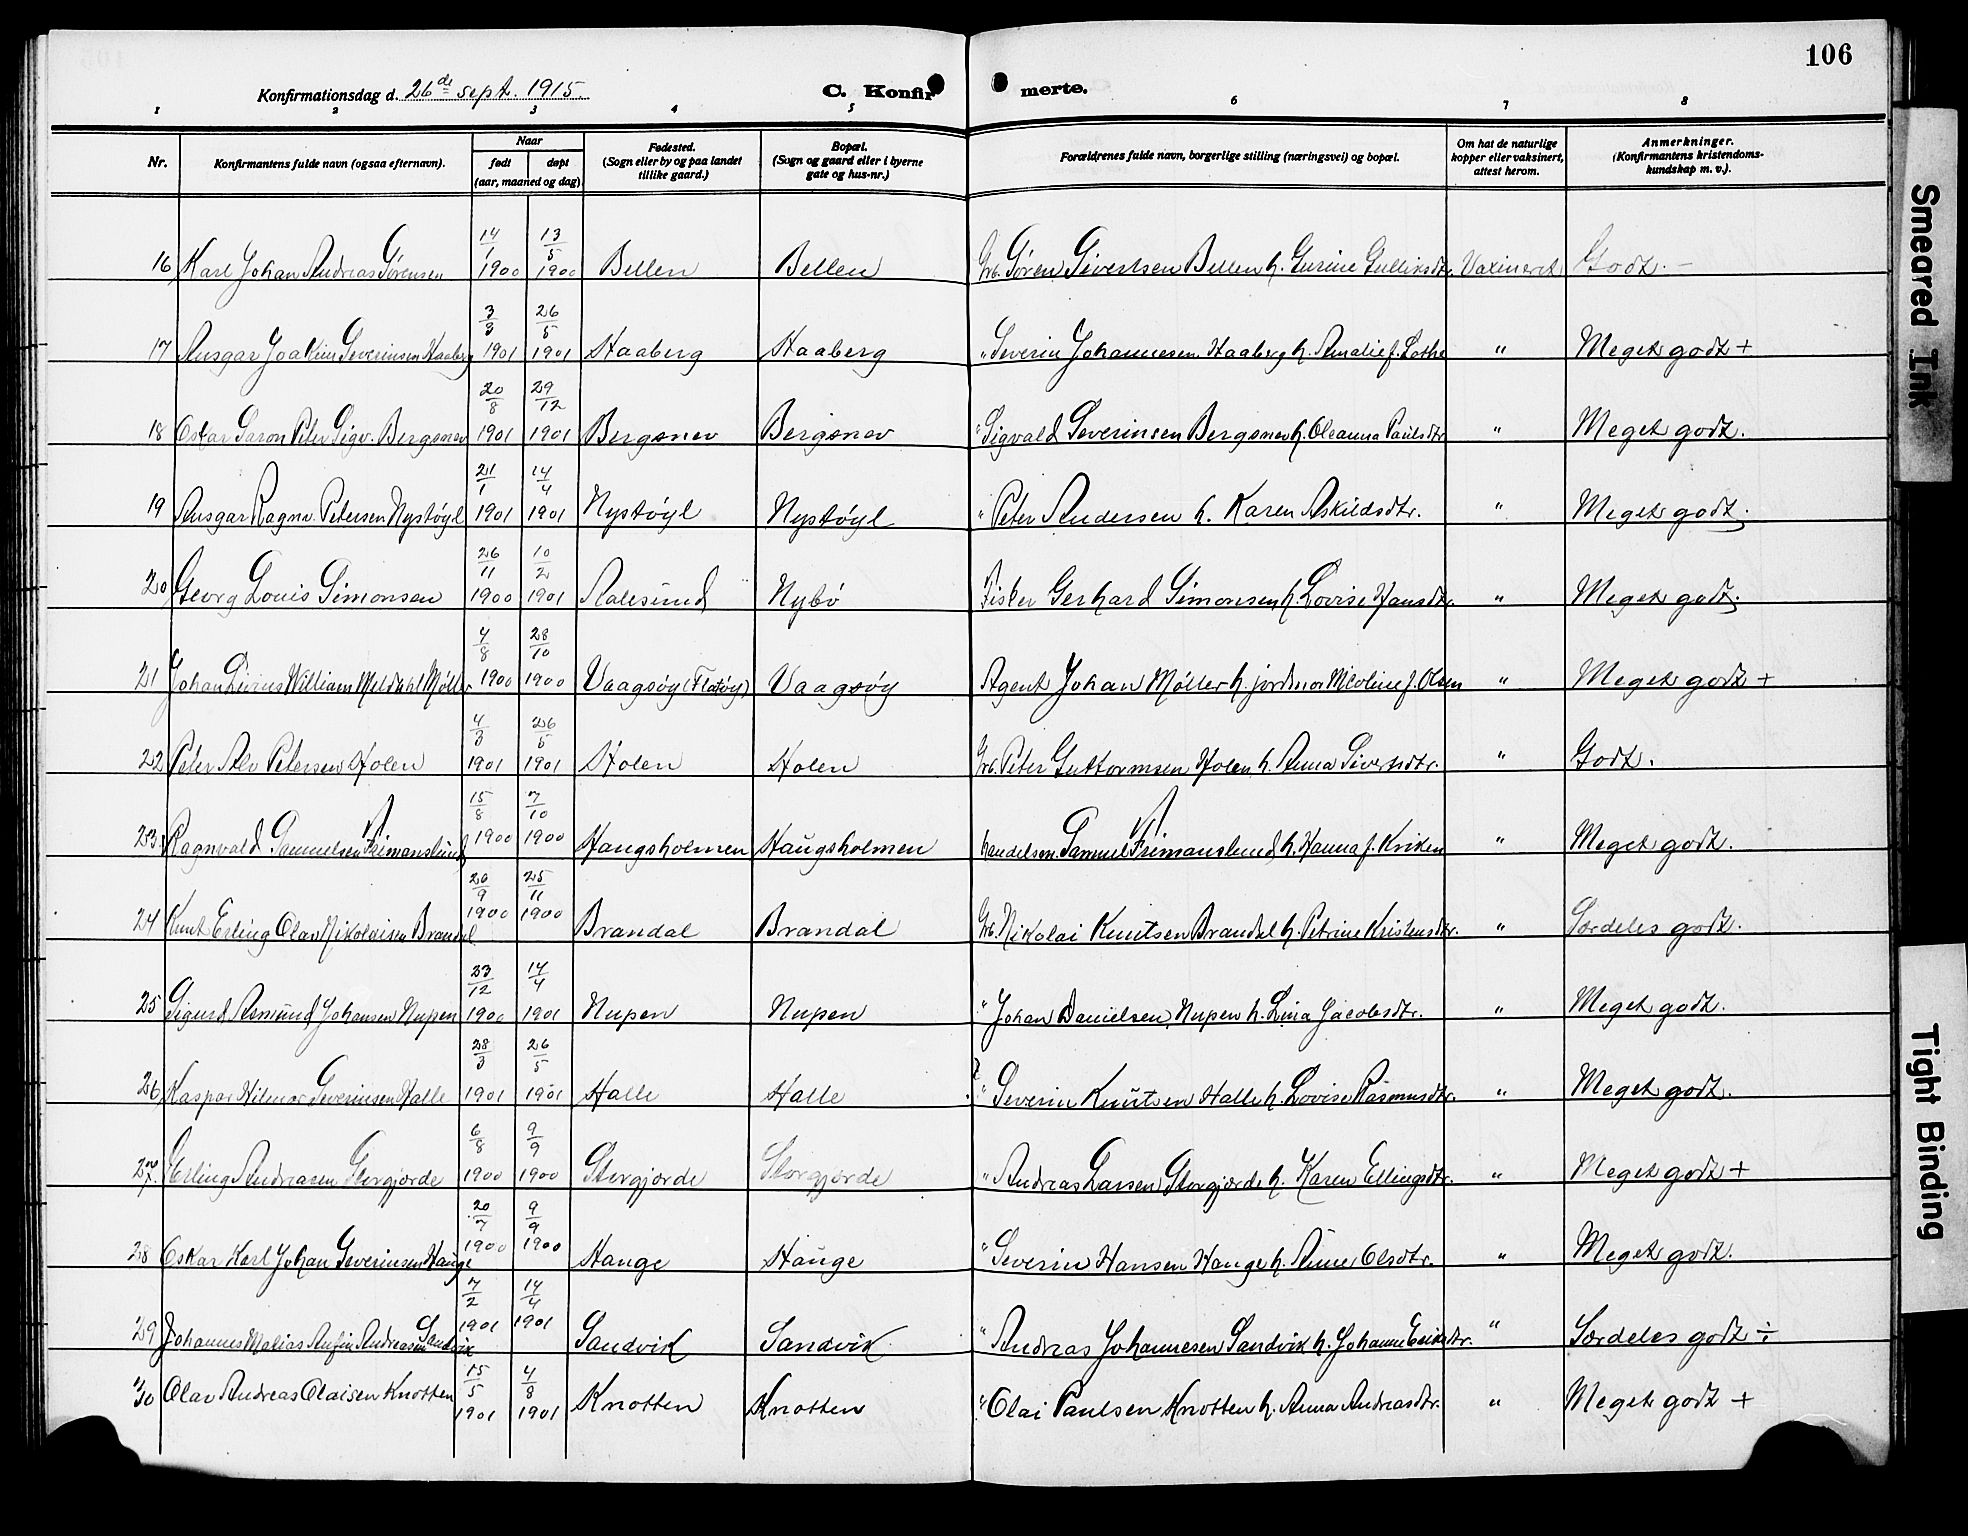 106
Konfirmationsdag d. 26de sept. 1915.
C. Konfirmerte.
1 2 3 4 5 6 7 8
Nr. | Konfirmantens fulde navn (ogsaa efternavn). | Naar født døpt (aar, maaned og dag) | Fødested. (Sogn eller by og paa landet tillike gaard.) | Bopæl. (Sogn og gaard eller i byerne gate og hus-nr.) | Forældrenes fulde navn, borgerlige stilling (næringsvei) og bopæl. | Om hat de naturlige kopper eller vaksinert, attest herom. | Anmerkninger. (Konfirmantens kristendoms-kundskap m. v.).
16 Karl Johan Andreas Sørensen 14/1 1900 13/5 1900 Bellen Bellen Grb. Søren Sivertsen Bellen h. Gurine Gulliksdtr. Vaxineret Godt. –
17 Ansgar Joakim Severinsen Haaberg 3/3 1901 26/5 1901 Haaberg Haaberg " Severin Johannesen Haaberg h. Amalie f. Lothe " Meget godt +
18 Oskar Saron Peter Sigv. Bergsnev 20/8 1901 29/12 1901 Bergsnev Bergsnev " Sigvald Severinsen Bergsnev h. Oleanna Paulsdtr " Meget godt.
19 Ansgar Ragnv. Petersen Nystøyl 21/1 1901 14/4 1901 Nystøyl Nystøyl " Peter Andersen h. Karen Askildsdtr. " Meget godt.
20 Georg Louis Simonsen 26/11 1900 10/2 1901 Aalesund Nybø Fisker Gerhard Simonsen h. Lovise Hansdtr. " Meget godt.
21 Johan Livius William Meldahl Møller 4/8 1900 28/10 1900 Vaagsøy (Flatøy) Vaagsøy Agent Johan Møller h. jordmor Nicoline f. Olsen " Meget godt +
22 Peter Alv Petersen Holen 4/3 1901 26/5 1901 Holen Holen Grb. Peter Guttormsen Holen h. Anna Sivertsdtr. " Godt.
23 Ragnvald Samuelsen Frimanslund 15/8 1900 7/10 1900 Haugsholmen Haugsholmen handelsm. Samuel Frimanslund h. Hanna f. Kriken " Meget godt.
24 Knut Erling Olav Nikolaisen Brandal 26/9 1900 25/11 1900 Brandal Brandal Grb. Nikolai Knutsen Brandal h. Petrine Kristensdtr. " Særdeles godt.
25 Sigurd Asmund Johansen Nupen 23/12 1900 14/4 1901 Nupen Nupen " Johan Danielsen Nupen h. Lina Jacobsdtr. " Meget godt.
26 Kaspar Hilmar Severinsen Halle 28/3 1901 26/5 1901 Halle Halle " Severin Knutsen Halle h. Lovise Rasmusdtr. " Meget godt.
27. Erling Andreasen Storgjørde 6/8 1900 9/9 1900 Storgjørde Storgjørde " Andreas Larsen Storgjørde h. Karen Ellingsdtr. " Meget godt +
28 Oskar Karl Johan Severinsen Hauge 20/7 1900 9/9 1900 Hauge Hauge " Severin Hansen Hauge h. Anne Olsdtr. " Meget godt.
29 Johannes Matias Anfin Andreasen Sandvik 7/2 1901 14/4 1901 Sandvik Sandvik " Andreas Johannesen Sandvik h. Johanne Eriksdtr. " Særdeles godt ÷
30 Olav Andreas Olaisen Knotten 15/5 1901 4/8 1901 Knotten Knotten " Olai Paulsen Knotten h. Anna Andreasdtr. " Meget godt +
Smeared Ink
Tight Binding